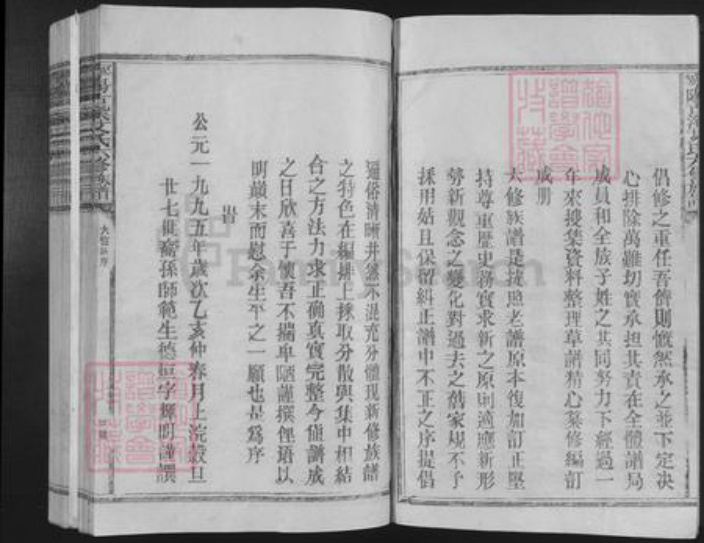 倡修之重任吾儕則慨然承之並下定決
心排除萬難切實承担其責在全體譜局
成員和全族子姓之共同努力下經過一
年來搜集資料整理草譜精心纂修編訂
成册
六修族譜是按照老譜原本復加訂正堅
持尊重歷史務實求新之原則適應新形
勢新觀念之變化對過去之舊家規不予
採用姑且保留糾正譜中不正之序提倡
通俗清晰井然不混充分體現新修族譜
之特色在編排上採取分散與集中相結
合之方法力求正确真實完整今値譜成
之日欣喜于懷吾不揣卑陋謹撰俚语以
明巔末而慰余生平之一願也是為序
旹
公元一九九五年歲次乙亥仲春月上浣穀旦
廿七世裔孫師範生德恒字輝明謹譔
六修族譜
六修新序
譜學會
收藏
FamilySearch